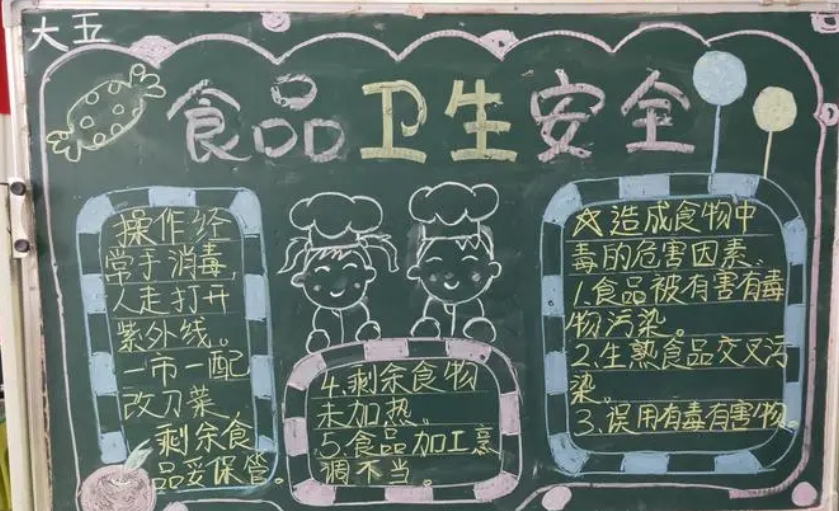 大五
食品卫生安全
操作经
常手消毒,
人走打开
紫外线。
一市一配
改刀菜,
剩余食
品妥保管。
☆造成食物中
毒的危害因素。
1.食品被有害有毒
物污染。
2.生熟食品交叉污
染。
3.误用有毒有害物。
4.剩余食物
未加热。
5.食品加工烹
调不当。